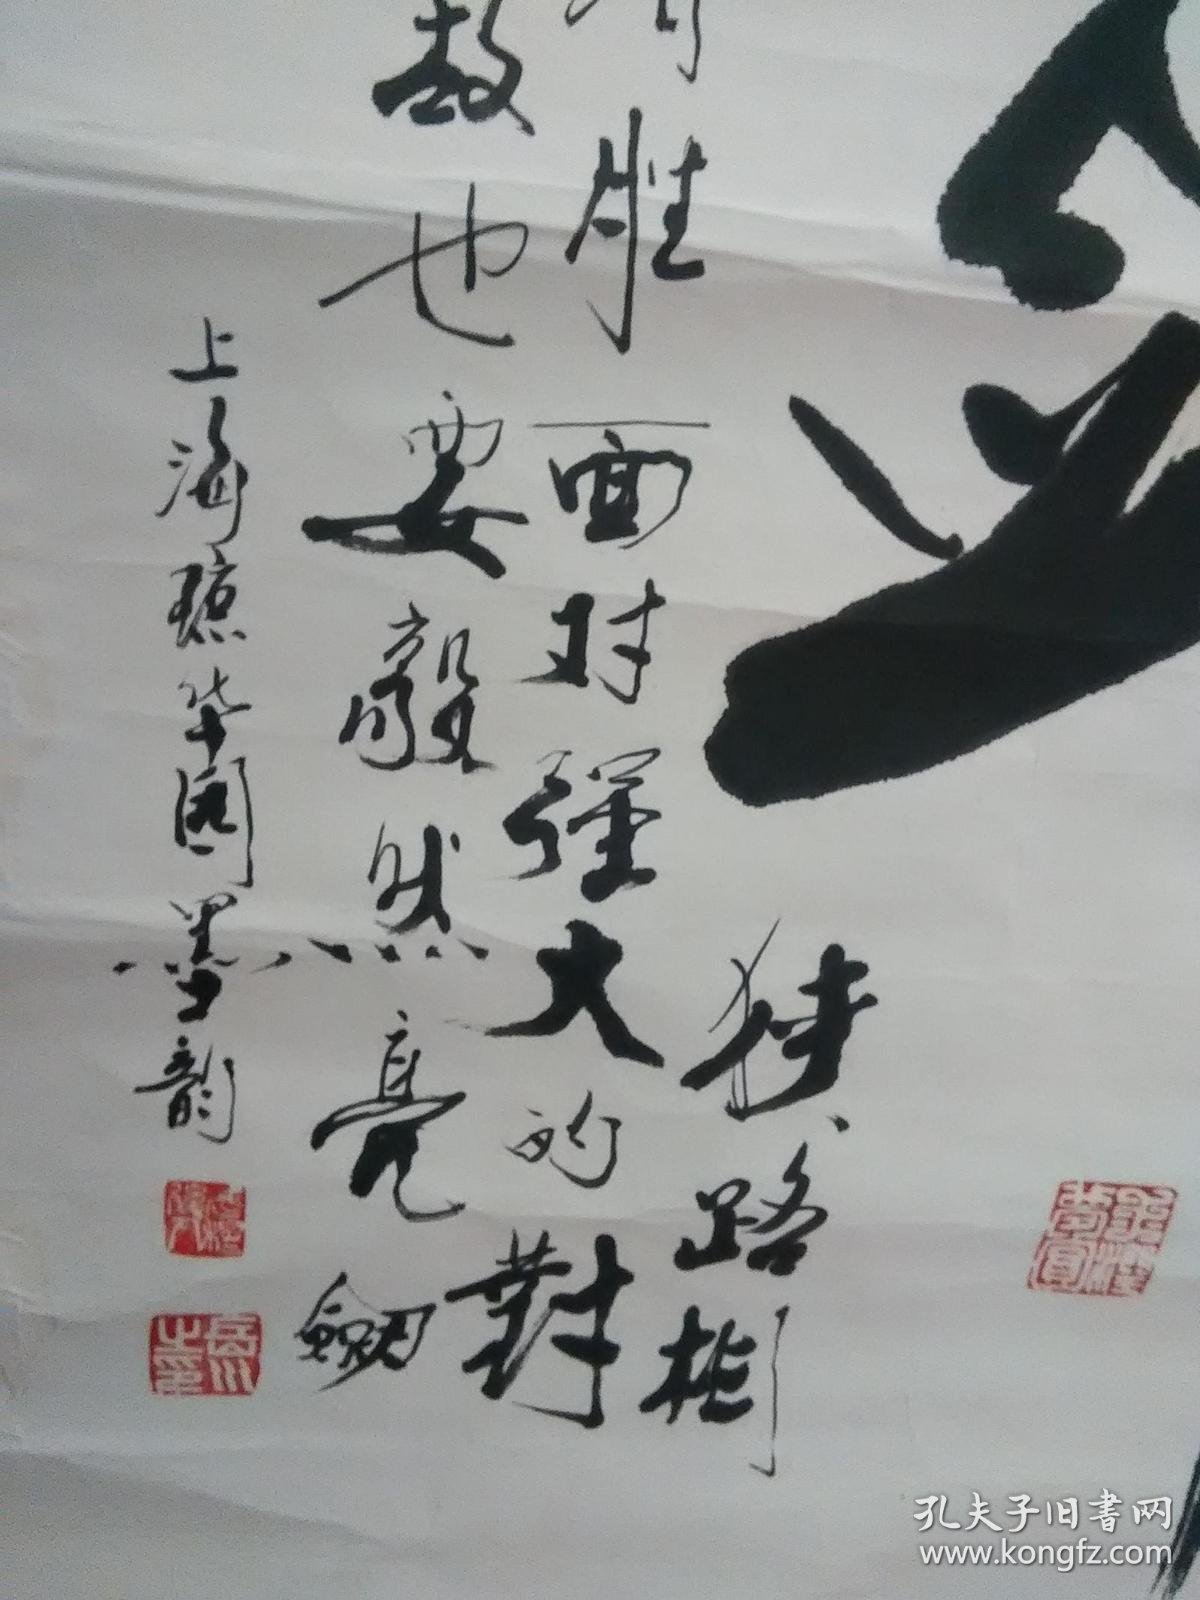 狭路相
胜面对强大的對
敌也要毅然亮劍
上海琼华阁墨韵
孔夫子旧書网
www.kongfz.com